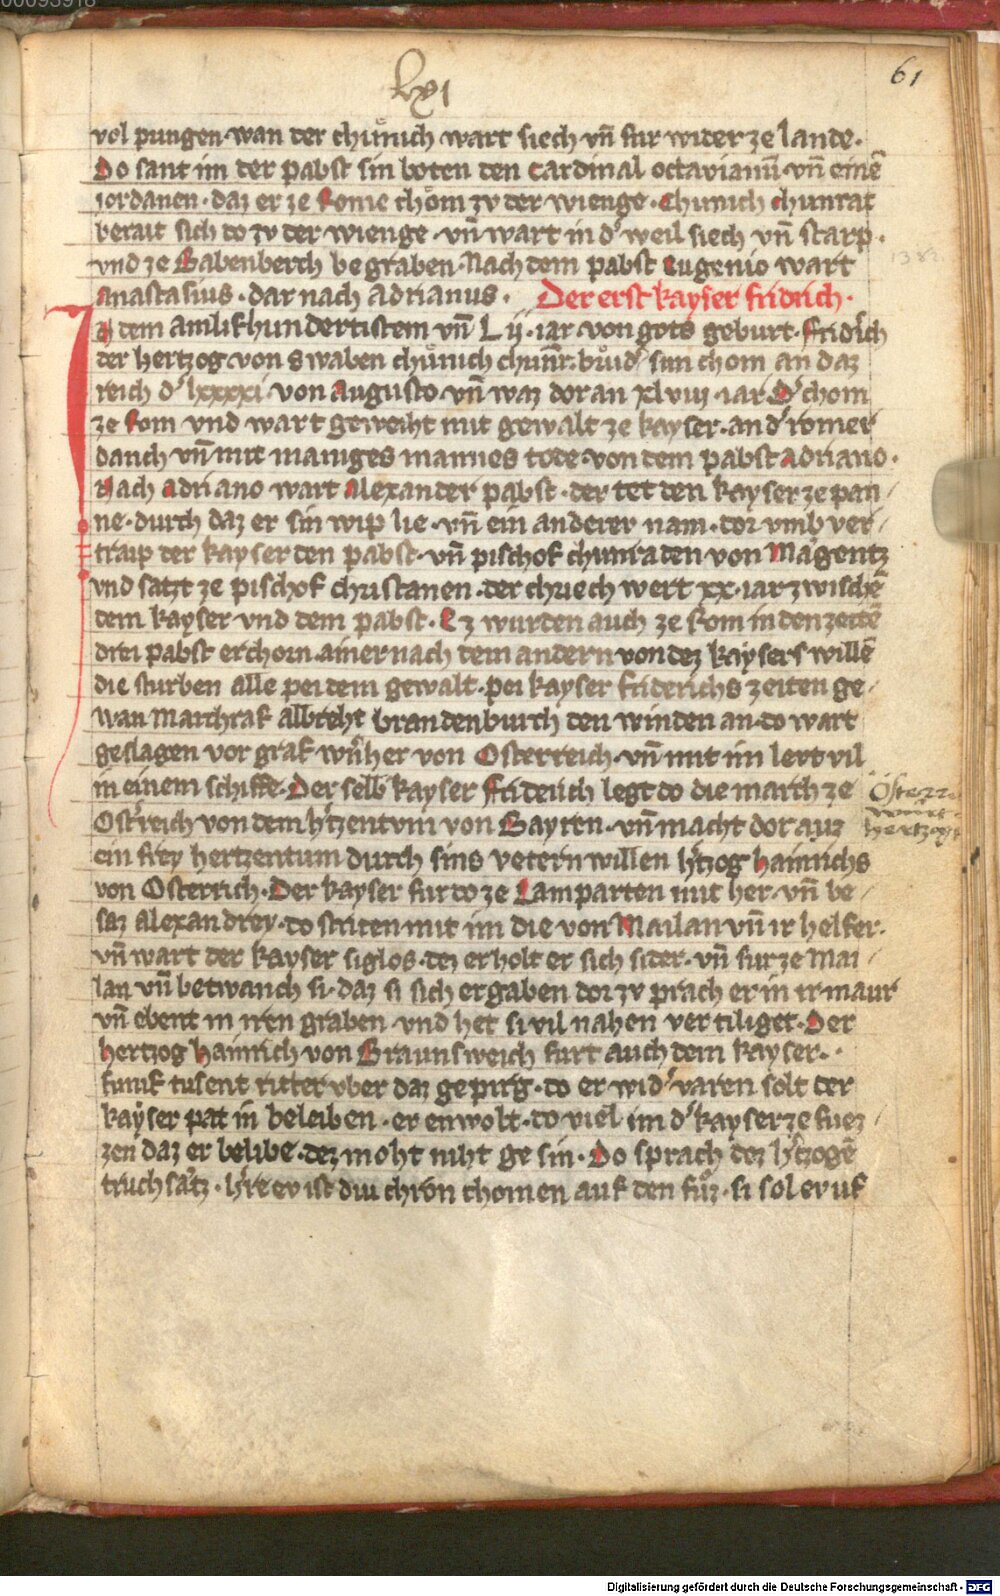 00095918
lxj
61
vol pungen wan der chuͤnich wart siech vn̄ fur wider ze lande.
Do sant im der pabst sin boten den cardinal octauianū vn̄ einē
iordanen · daz er ze Rome chom zv der wienge · Chunich chunrat
berait sich do zv der wienge vn̄ wart in d' weil siech vn̄ starp.
vnd ze Babenberch begraben. Nach dem pabst eugenio wart
anastasius · dar nach adrianus. Der erst kayser fridrich.
In dem ainlifhundertistem vn̄ Lij · iar von gots geburt. fridrich
der hertzog von swaben chuͤnich chunr. bruͦd' sun chom an daz
reich d' lxxxxi von Augusto vn̄ waz dor an xlviij iar. D' chom
ze Rom vnd wart geweiht mit gewalt ze kayser. an d' romer
danch vn̄ mit maniges mannes tode von dem pabst Adriano.
Nach adriano wart alexander pabst · der tet den kayser ze pan
ne · durch daz er sin wip lie · vn̄ ein anderer nam · dor vmb ver
traip der kayser den pabst · vn̄ pischof chunraden von Magentz
vnd satzt ze pischof christanen · der chriech wert xx · iar zwischē
dem kayser vnd dem pabst · Ez wurden auch ze Rom in den zeitē
drei pabst erchorn ainer nach dem andern von dez kaysers willē
die sturben alle pei dem gewalt · pei kayser friderichs zeiten ge
wan Marchraf albreht brandenburch den winden an · do wart
geslagen vor graf w'nher von Osterreich · vn̄ mit im levt vil
in einem schiffe. Der selb kayser friderich legt do die march ze
Ost'reich von dem h'tzentvm von Bayren · vn̄ macht dor auz
ein frey hertzentum durch sins vetern willen h'tzog hainrichs
von Osterrich. Der kayser fur do ze Lamparten mit her · vn̄ be
saz alexandrey · do striten mit im die von Mailan vn̄ ir helfer.
vn̄ wart der kayser siglos · dez erholt er sich sider · vn̄ fur ze Mai
lan vn̄ betwanch si · daz si sich ergaben dor zv prach er in ir maur
vn̄ ebent in iren graben vnd het si vil nahen vertiliget. Der
hertzog hainrich von Braunsweich furt auch dem kayser.
funf tusent ritter vber daz gepirg · do er wid' varen solt der
kayser pat in beleiben · er enwolt · do viel im d' kayser ze fuez
zen daz er belibe · dez moht niht ge sin. Do sprach dez h'tzogē
truchsaͤtz · h're ev ist div chron chomen auf den fuͤz · si sol ev uf
Osterr
hertzog
Digitalisierung gefördert durch die Deutsche Forschungsgemeinschaft - DFG